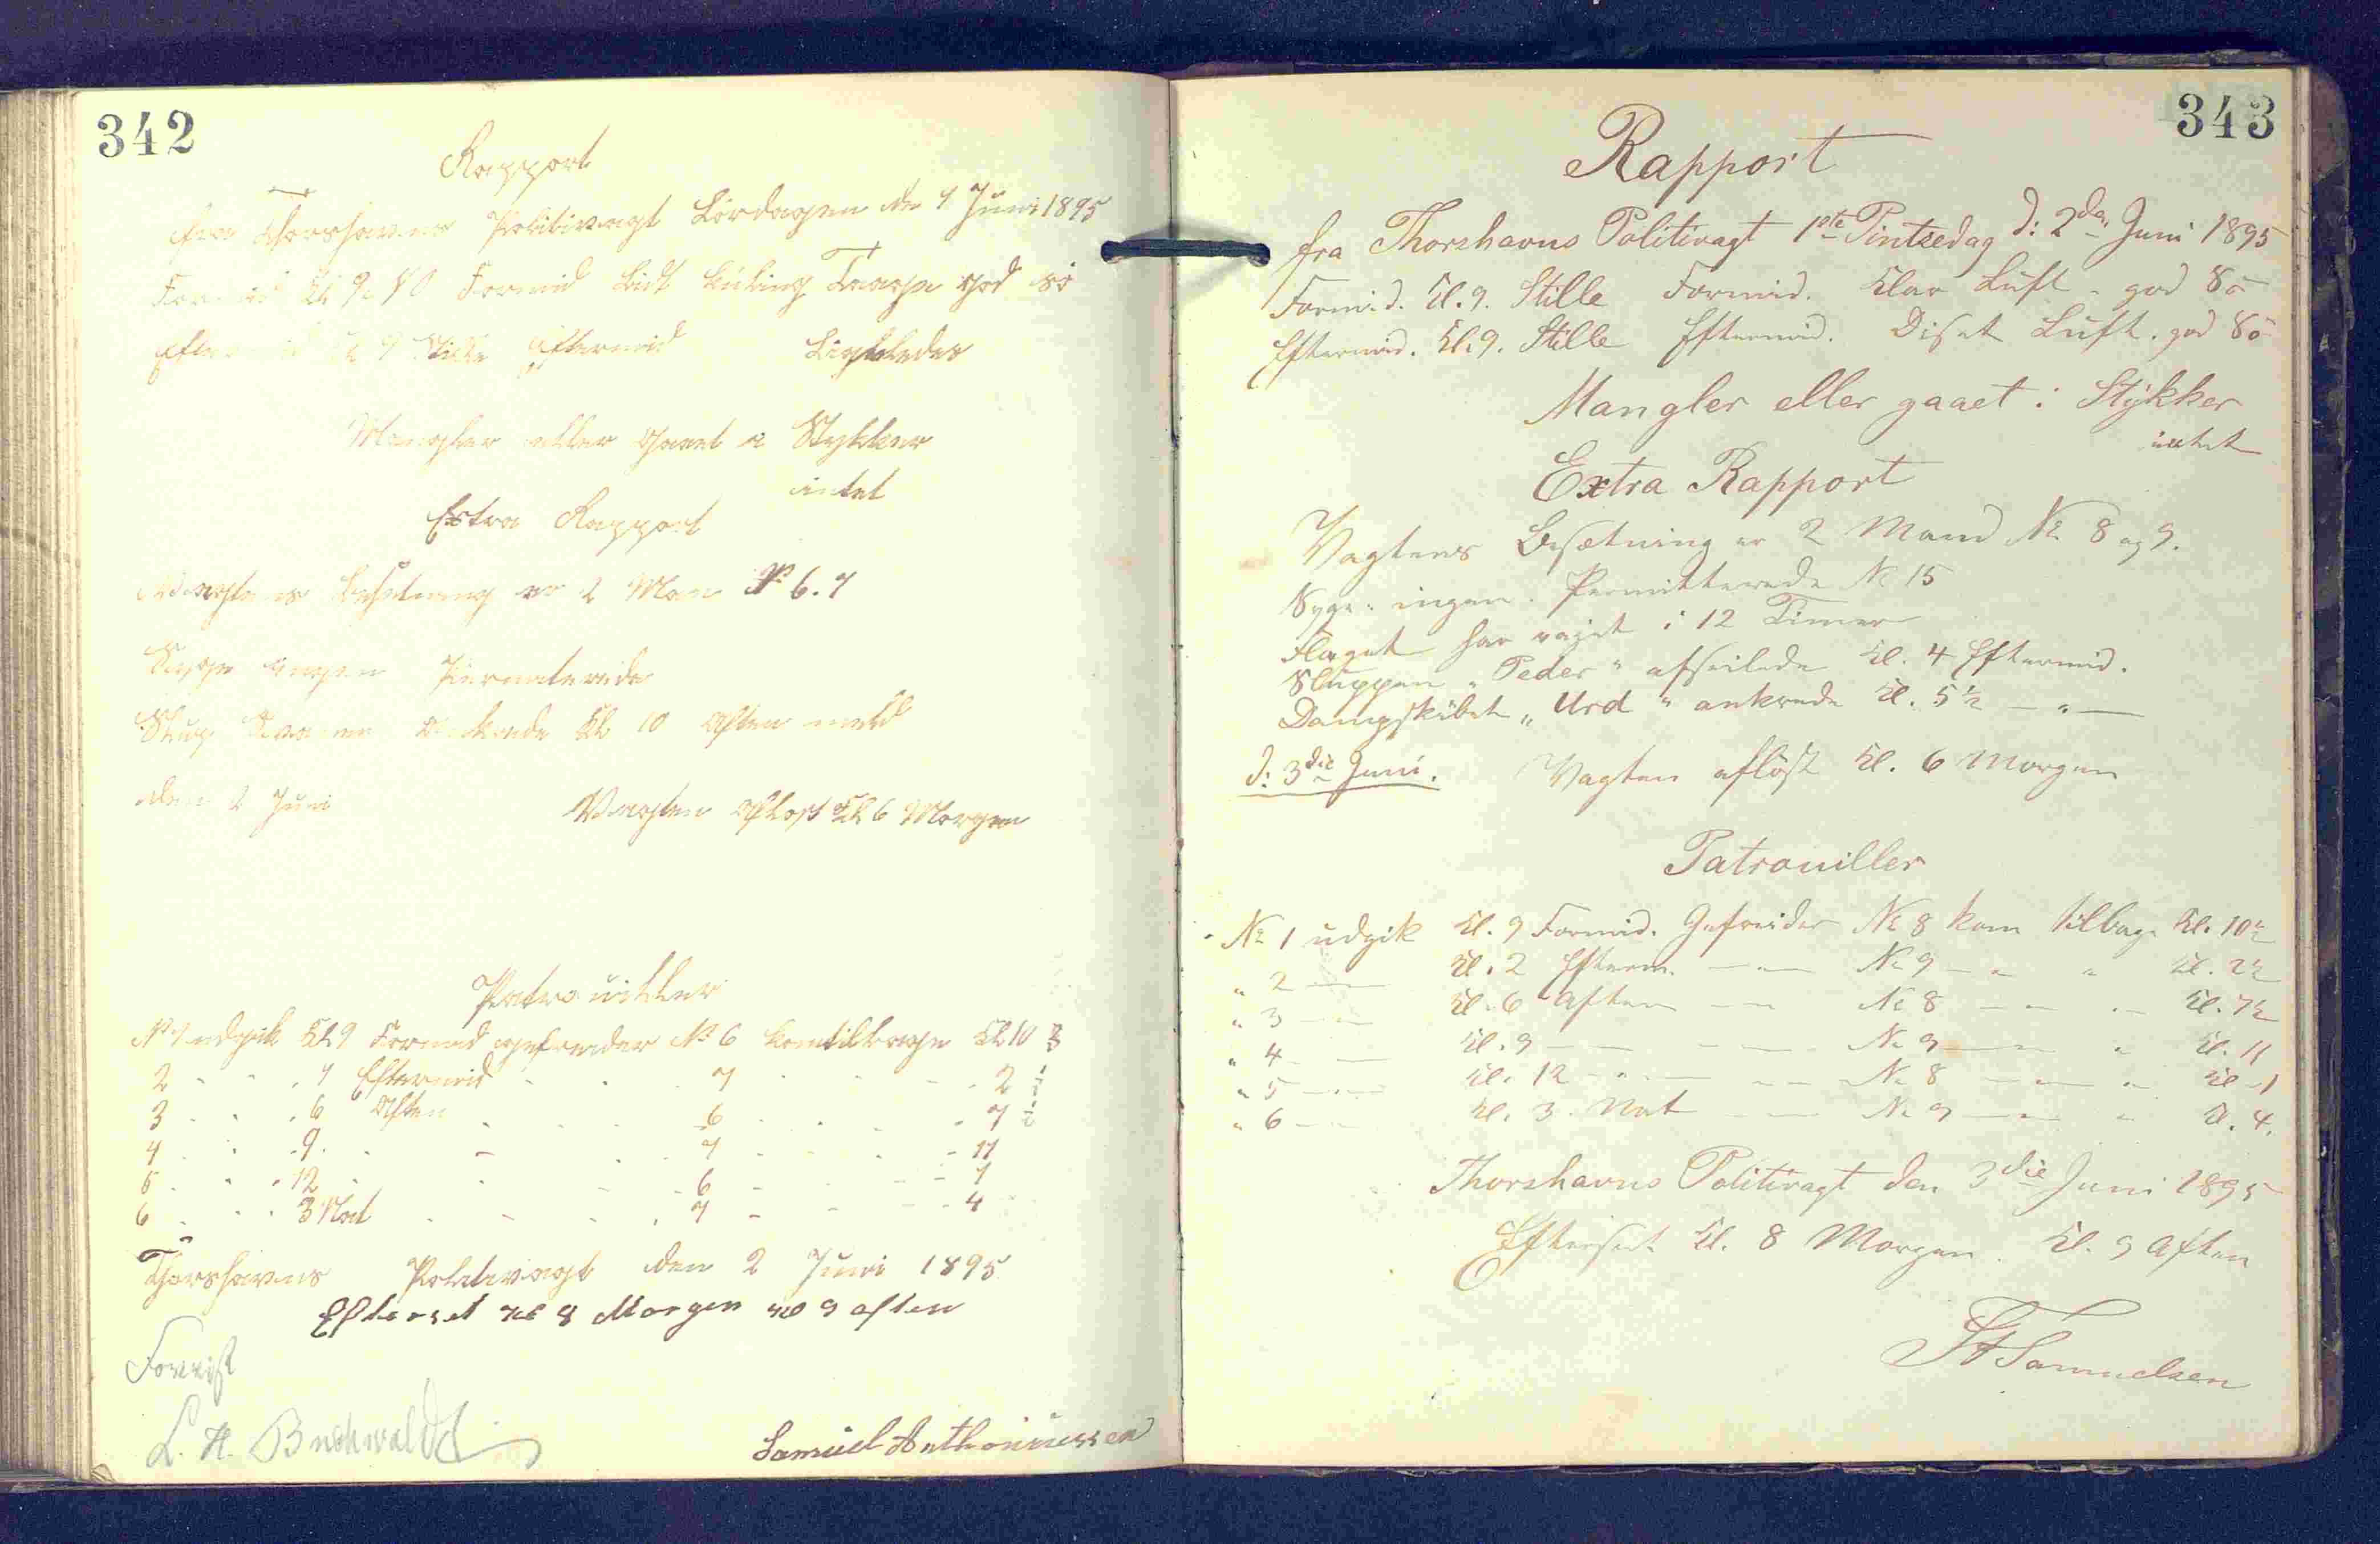 342
Rapport
fra Thorshavns Politivagt Lördagen den 1 Juni 1895
Formid Kl 9 Formid lidt Kuling god sö
Efter Kl 9 Stille Eftermid
Mangler eller gaaet i Stykker
intet
Extra Rapport
Vagtens Besetning er 2 Man No 6. 7
Syge ingen Permiterede
Slup ankrede Kl 10 Aften
den 2 Juni Vagten aflöst Kl 6 Morgen
Patrouiller
No 1 udgik Kl 9 Formid gefreider No 6 kom tilbage Kl 10 ½
2 " " " 1 Eftermid " " 7 " " " 2 "
3 " " " 6 Aften " " 6 " " " 7 "
4 " " 9 " " 7 " " 11
5 " " 12 " " 6 " " 1
6 " " 3 Nat " " 7 " " 4
Thorshavns Politivagt den 2 Juni 1895
Efterset Kl 8 Morgen Kl 9 aften
Forevist
L. H. Buchwaldt
Samuel Anthoniussen
343
Rapport
fra Thorshavns Politivagt 1ste Pintsedag d: 2den Juni 1895
Formid. Kl. 9. Stille Formid. Klar Luft - god Sö
Eftermid. Kl. 9. Stille Eftermid. Diset Luft. god Sö
Mangler eller gaaet i Stÿkker
intet
Extra Rapport
Vagtens Besætning er 2 Mand No 8 og 9.
Syge: ingen. Permitterede No 15
Flaget har vajet i 12 Timer
Sluppen "Peder" afseilede Kl. 4 Eftermid.
Dampskibet "Urd" ankrede Kl. 5½ — " —
d: 3die Juni. Vagten aflöst Kl. 6 Morgen
Patrouiller
No 1 udgik Kl. 9 Formid. Gefreider No 8 kom tilbage Kl. 10½
" 2 — Kl. 2 Efterm. — " — No 9 — " " Kl. 2½
" 3 — " Kl. 6 Aften — " No 8 — " " — Kl. 7½
" 4 — Kl. 9 — — " — No 9 — " " Kl. 11
" 5 — " — Kl. 12 — " — — " — No 8 — " — " Kl. 1
" 6 — " Kl. 3. Nat — " — No 9 — " — " Kl. 4.
Thorshavns Politivagt den 3die Juni 1895
Efterset Kl. 8 Morgen. Kl. 9 Aften
Samuelsen